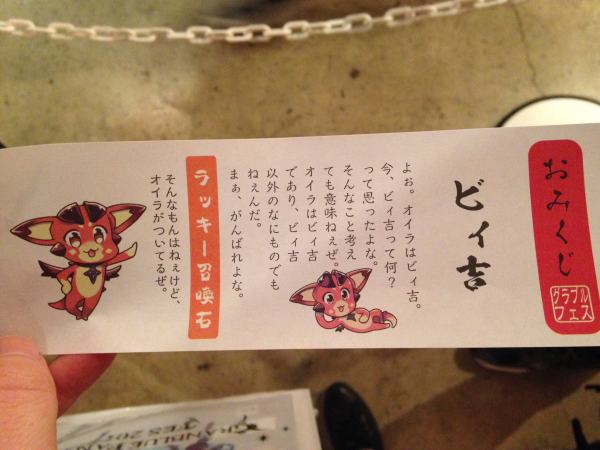 おみくじ
グラブル
フェス
ビィ吉
よぉ。オイラはビィ吉。
今、ビィ吉って何？
って思ったよな。
そんなこと考え
ても意味ねぇぜ。
オイラはビィ吉
であり、ビィ吉
以外のなにものでも
ねぇんだ。
まぁ、がんばれよな。
ラッキー召喚石
そんなもんはねぇけど、
オイラがついてるぜ。
GRANBLUE FAN
FES 20